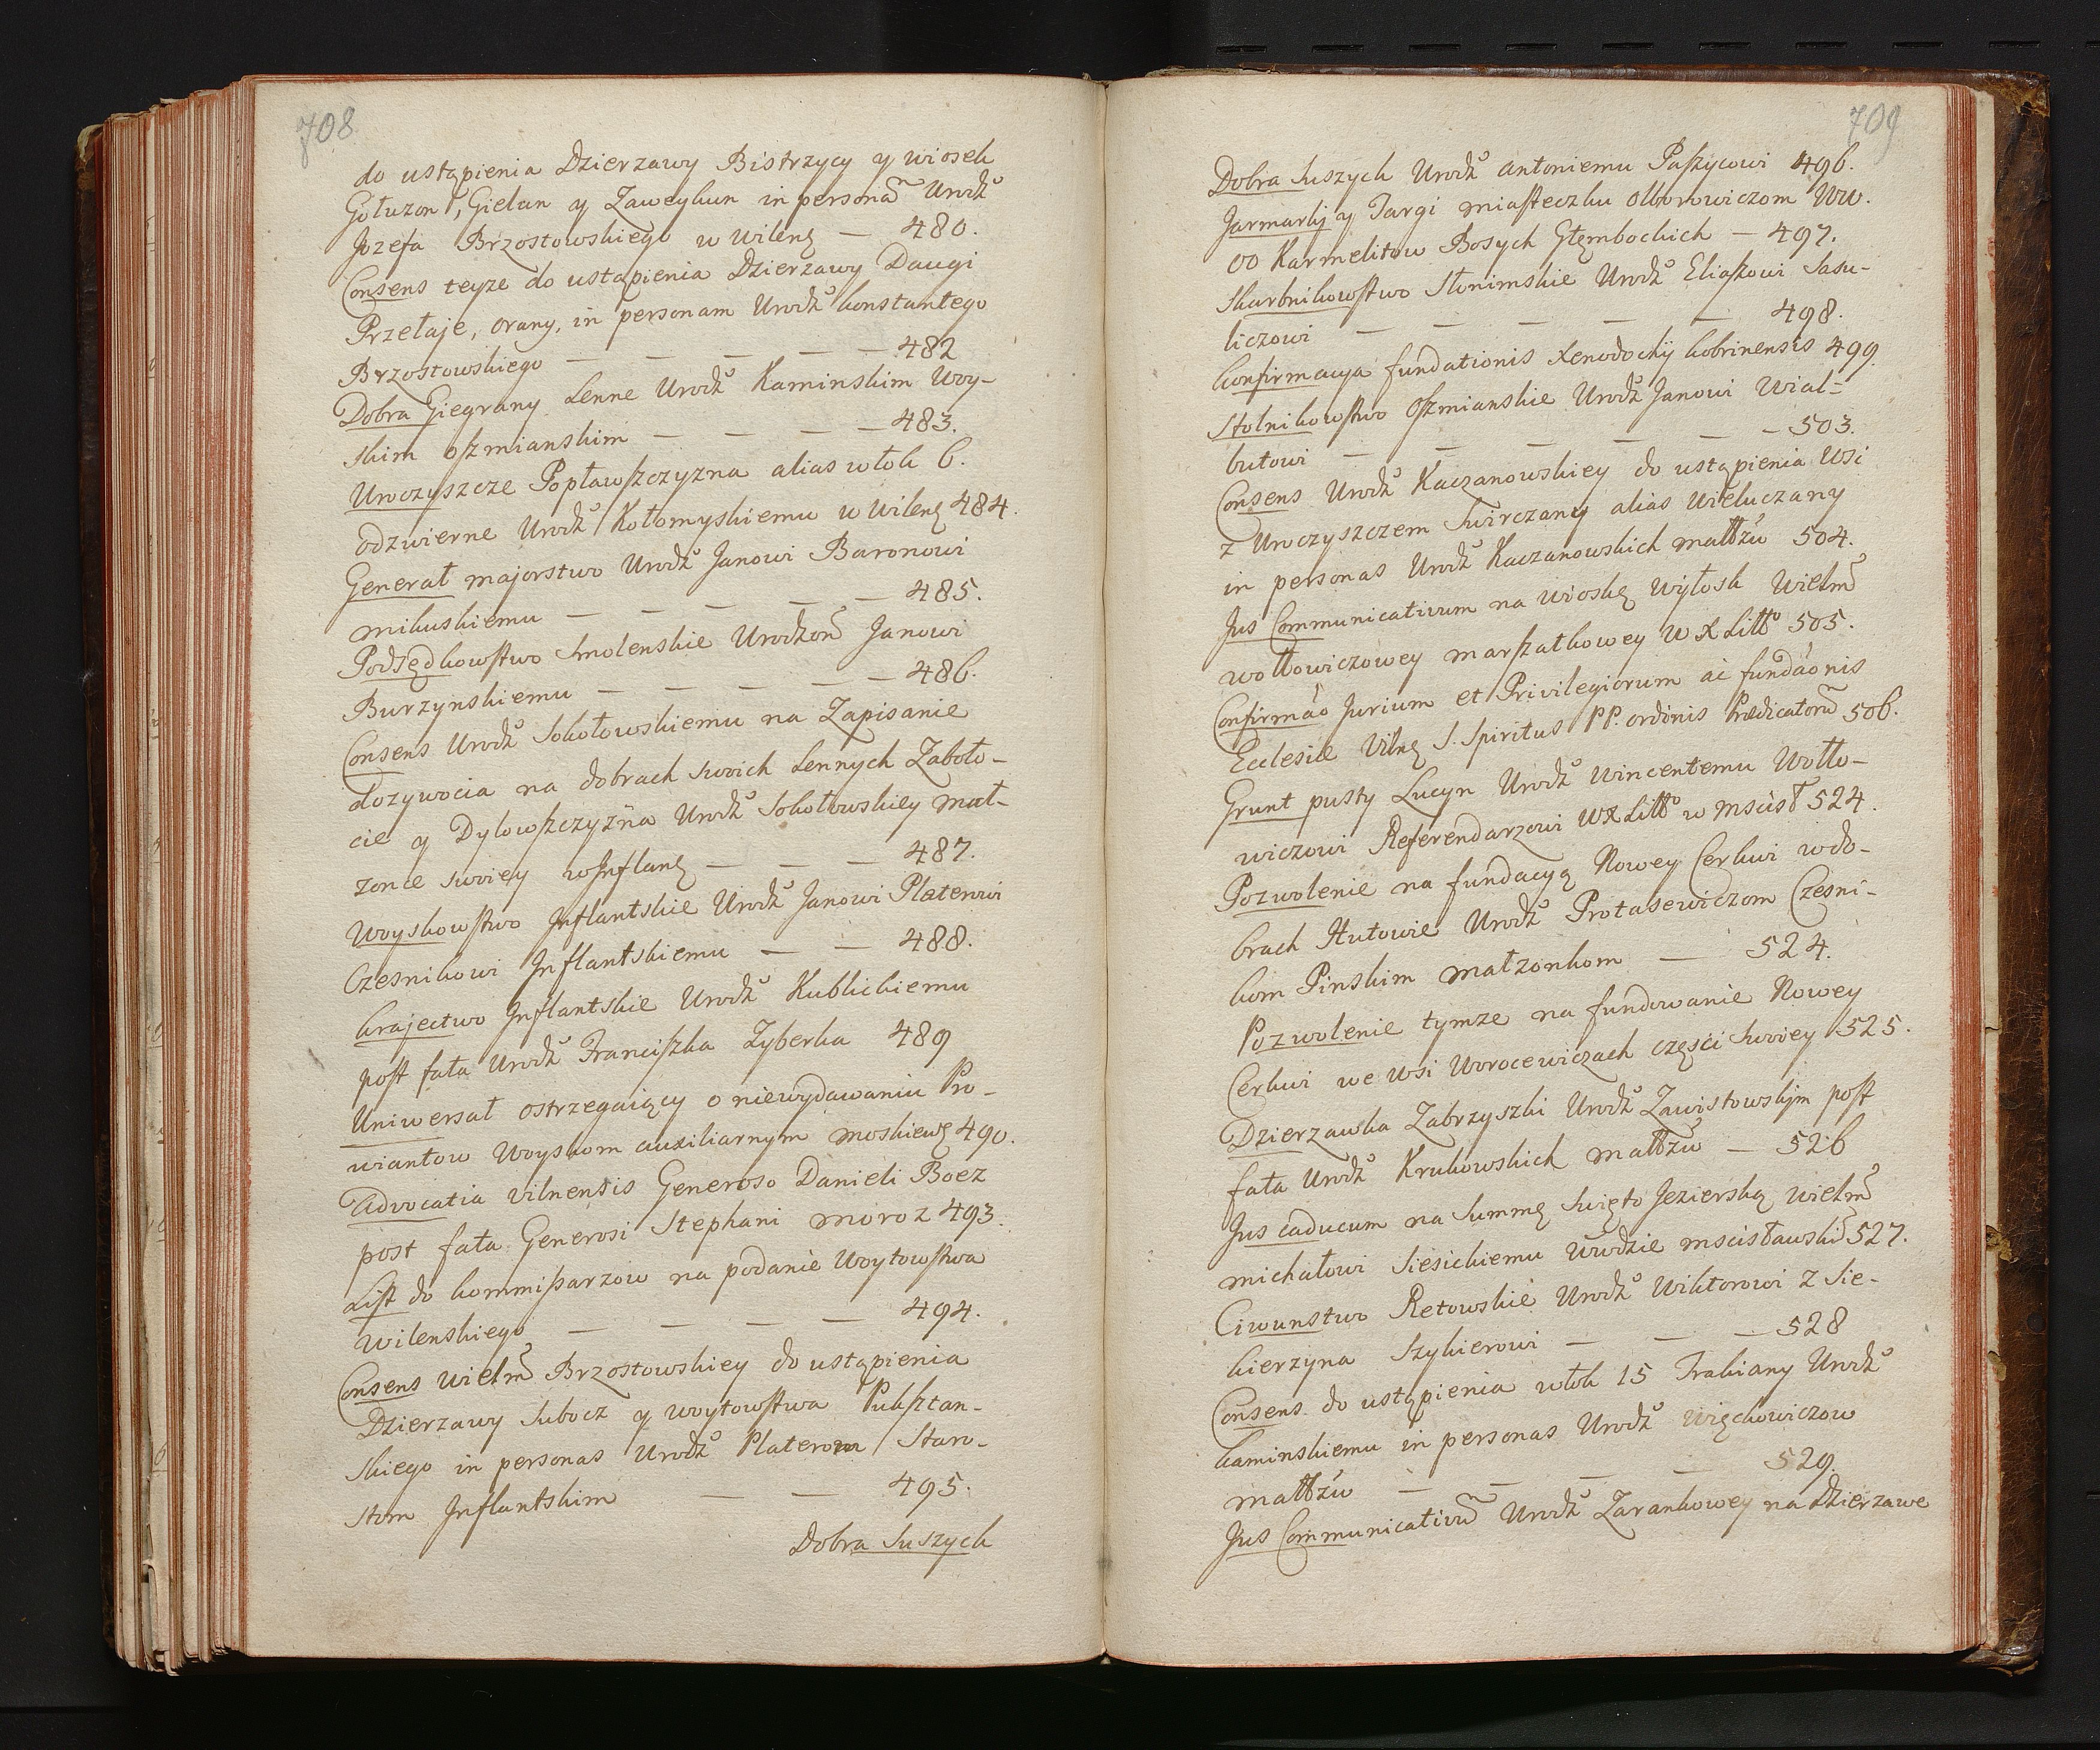 708
do ustąpienia Dzierzawy Bistrzycy y wiosek
Gołuzon, Gielun y Zaweykun in personam Urodz
Jozefa Brzostowskiego w Wileng — 480.
Consens teyze do ustąpienia Dzierzawy Daugi
Przełaje, Orany, in personam Urodz Konstantego
Brzostowskiego — — — — — 482
Dobra Giegrany Lenne Urodz Kaminskim Woy-
skim oszmianskim — — — — 483.
Uroczyszcze Popławszczyzna alias włok 6.
odzwierne Urodz Kołomyskiemu w Wileng 484.
Generał majorstwo Urodz Janowi Baronowi
mikuskiemu — — — — — 485.
Podsędkowstwo Smolenskie Urodzon Janowi
Burzynskiemu — — — — — 486.
Consens Urodz Sokołowskiemu na Zapisanie
dozywocia na dobrach swoich Lennych Zaboło-
cie y Dylowszczyzna Urodz Sokołowskiey mał-
zonce swoiey w Inflang — — — 487.
Woyskowstwo Inflantskie Urodz Janowi Platerowi
Czesnikowi Inflantskiemu — — 488.
Krajectwo Inflantskie Urodz Kublickiemu
post fata Urodz Franciszka Zyberka 489
Uniwersał ostrzegaiący o niewydawaniu Pro-
wiantow Woyskom auxiliarnym moskiewg 490.
Advocatia Vilnensis Generoso Danieli Boez
post fata Generosi Stephani moroz 493.
List do kommissarzow na podanie Woytowstwa
Wilenskiego — — — — 494.
Consens wielm Brzostowskiey do ustąpienia
Dzierzawy Subocz y woytowstwa Puksztan-
skiego in personas Urodz Platerow Staro-
stom Inflantskim — — 495.
Dobra Suszych
709
Dobra Suszych Urodz Antoniemu Paszycowi 496.
Jarmarki y Targi miasteczku Olborowiczom Ww.
OO Karmelitow Bosych Głęmbockich — 497.
Skarbnikowstwo Słonimskie Urodz Eliaszowi Sasu-
liczowi — — — — — 498.
konfirmacya fundationis Xenodochij kobrinensis 499
Stolnikowstwo Oszmianskie Urodz Janowi Wial-
butowi — — — — — — 503.
Consens Urodz Kaczanowskiey do ustąpienia Wsi
z Uroczyszczem Swirczany alias Wieluczany
in personas Urodz Kaczanowskich małłzu 504.
Jus Communicativum na wioskę wyłosk Wielm
Wołłowiczowey marszałkowey W X Litto 505.
Confirmao Jurium et Privilegiorum ac fundaonis
Ecclesiæ Vilng S. Spiritus P P. ordinis Prædicatorum 506.
Grunt pusty Lucyn Urodz Wincentemu Wołło-
wiczowi Referendarzowi W X Litto w Mscisł 524.
Pozwolenie na fundacyą Nowey Cerkwi w do-
brach Hutowie Urodz Protasewiczom Czesni-
kom Pinskim małzonkom — 524.
Pozwolenie tymze na fundowanie Nowey
Cerkwi we Wsi Worocewiczach części swoiey 525.
Dzierzawka Zabrzyszki Urodz Zawistowskim post
fata Urodz Krukowskich małłzu — 526
Jus caducum na Summę Swięto Jezierską Wielm
michałowi Siesickiemu Wwdzie mscisławski 527.
Ciwunstwo Retowskie Urodz Wiktorowi z Sie-
kierzyna Szykierowi — — — 528
Consens do ustąpienia włok 15 Trabiany Urodz
Kaminskiemu in personas Urodz Więckowiczow
małłzu — — — — 529.
Jus Communicativum Urodz Zarankowey na dzierzawe